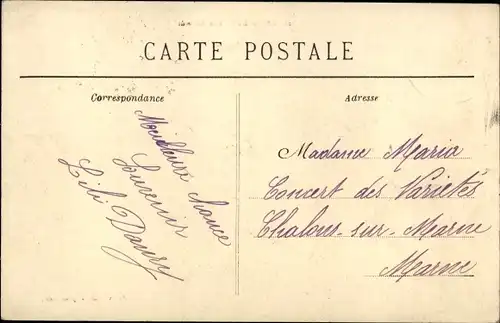 CARTE POSTALE
Correspondance
Meilleure chance
Souvenir
Lili Daury
Adresse
Madame Maria
Concert des Varietés
Chalons-sur-Marne
Marne